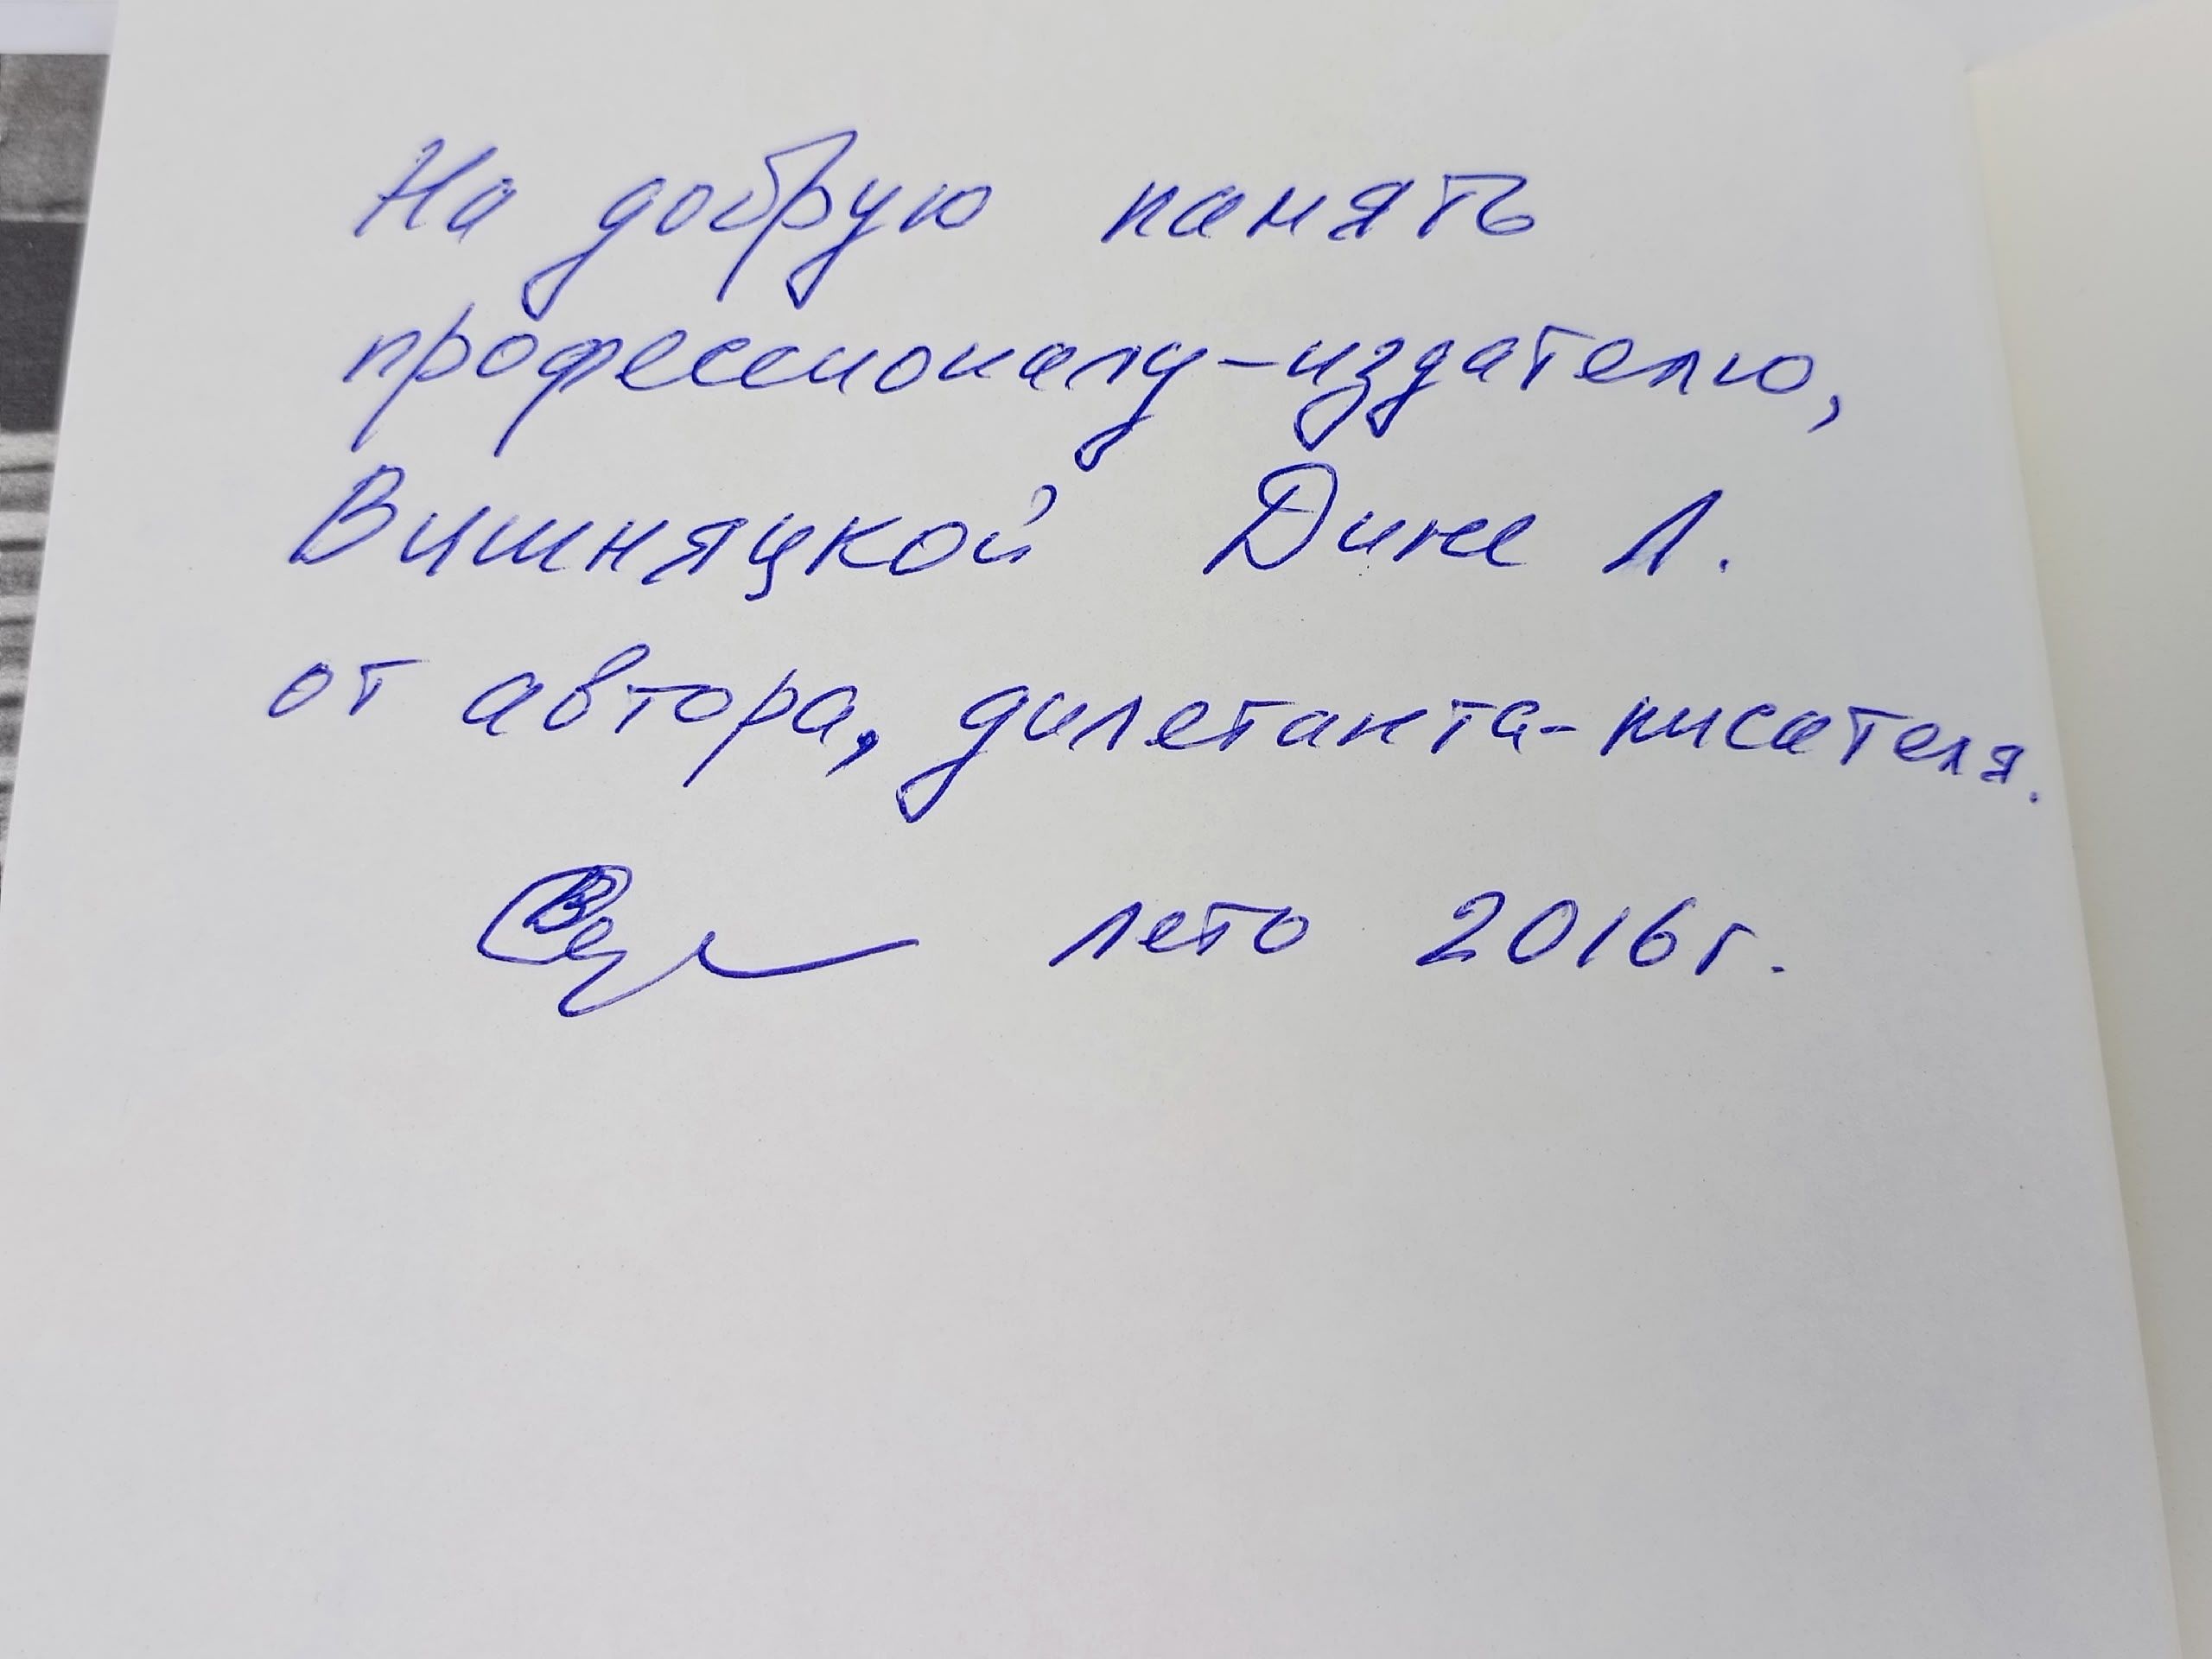 На добрую память
профессионалу-издателю,
Вишняцкой Дине Л.
от автора, дилетанта-писателя.
лето 2016 г.